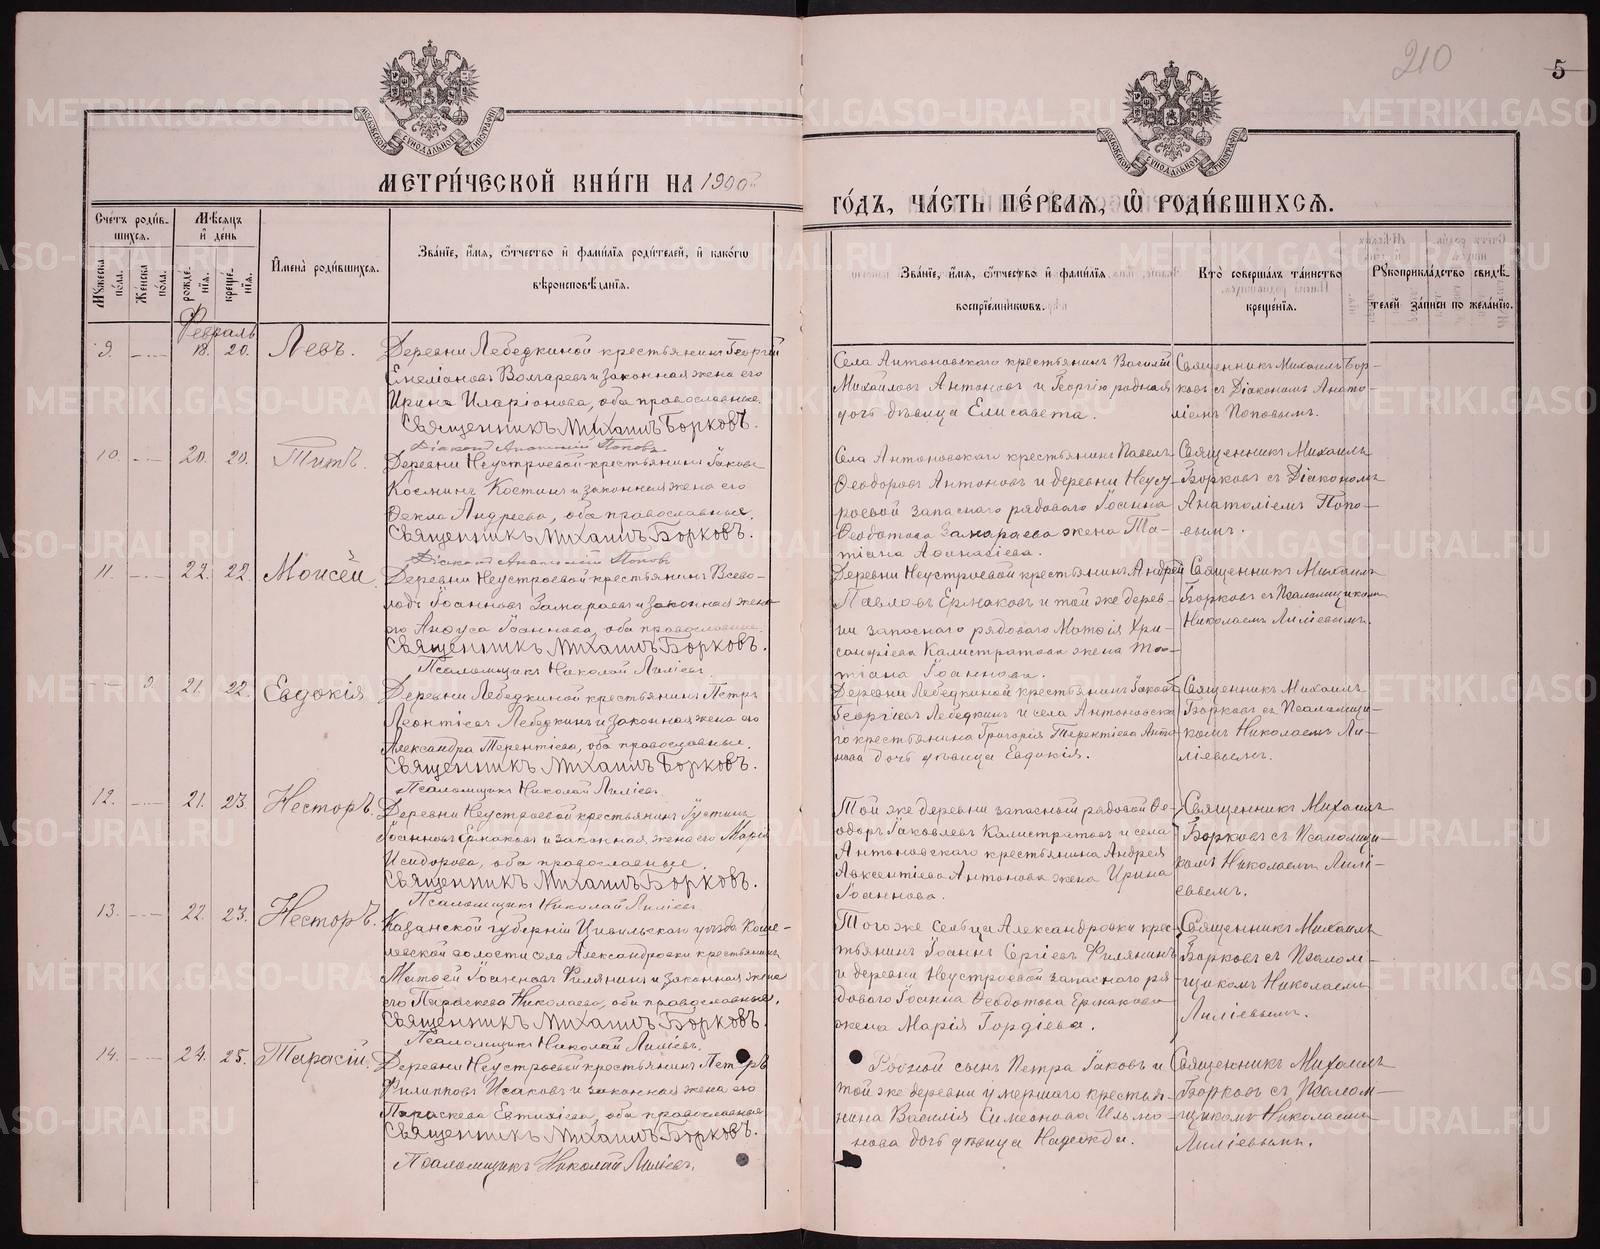 210
5
МЕТРИ́ЧЕСКОЙ КНИ́ГИ НА 1900й
ГО́ДЪ, ЧА́СТЬ ПЕ́РВАЯ, Ѡ РОДИ́ВШИХСЯ.
Сче́тъ роди́в-
шихся.
Мужеска
по́ла.
Же́нска
по́ла.
Мѣ́сяцъ
и҆ де́нь
рожде́-
нїя.
креще́-
нїя.
И҆мена̀ роди́вшихся.
Зва́нїе, и҆́мя, ѻ҆́тчество и҆ фами́лїя роди́телей, и҆ како́гѡ
вѣроисповѣ́данїя.
Зва́нїе, и҆́мя, ѻ҆́тчество и҆ фами́лїя
воспрїе́мникѡвъ.
Кто̀ соверша́лъ та́инство
креще́нїя.
Рꙋкоприкла́дство свидѣ́-
телей за́писи по жела́нїю.
Февраль
9. 18. 20. Левъ.
Деревни Лебедкиной крестьянинъ Георгій
Емеліановъ Волгаревъ и законная жена его
Ирина Иларіонова, оба православные.
Священникъ Михаилъ Борковъ.
Діаконъ Анатолій Поповъ
Села Антоновскаго крестьянинъ Василій
Михайловъ Антоновъ и Георгію родная
дочь дѣвица Елисавета.
Священникъ Михаилъ Бор-
ковъ съ Діакономъ Анато-
ліемъ Поповымъ.
10. 20. 20. Титъ.
Деревни Неустроевой крестьянинъ Іаковъ
Косминъ Костинъ и законная жена его
Ѳекла Андреева, оба православные.
Священникъ Михаилъ Борковъ.
Діаконъ Анатолій Поповъ
Села Антоновскаго крестьянинъ Павелъ
Ѳеодоровъ Антоновъ и деревни Неуст-
роевой запаснаго рядоваго Іоанна
Ѳеодотова Замараева жена Та-
тіана Аѳанасіева.
Священникъ Михаилъ
Борковъ съ Діакономъ
Анатоліемъ Попо-
вымъ.
11. 22. 22. Моисей.
Деревни Неустроевой крестьянинъ Всево-
лодъ Іоанновъ Замараевъ и законная жена
его Анфуса Іоаннова, оба православные.
Священникъ Михаилъ Борковъ.
Псаломщикъ Николай Лиліевъ.
Деревни Неустроевой крестьянинъ Андрей
Павловъ Ермаковъ и той же дерев-
ни запаснаго рядоваго Матѳія Хри-
санфіева Калистратова жена Та-
тіана Іоаннова.
Священникъ Михаилъ
Борковъ съ Псаломщикомъ
Николаемъ Лиліевымъ.
9. 21. 22. Евдокія
Деревни Лебедкиной крестьянинъ Петръ
Леонтіевъ Лебедкинъ и законная жена его
Александра Терентіева, оба православные.
Священникъ Михаилъ Борковъ.
Псаломщикъ Николай Лиліевъ.
Деревни Лебедкиной крестьянинъ Іаковъ
Георгіевъ Лебедкинъ и села Антоновска-
го крестьянина Григорія Терентіева Анто-
нова дочь дѣвица Евдокія.
Священникъ Михаилъ
Борковъ съ Псаломщи-
комъ Николаемъ Ли-
ліевымъ.
12. 21. 23. Несторъ.
Деревни Неустроевой крестьянинъ Іустинъ
Іоанновъ Ермаковъ и законная жена его Марія
Исидорова, оба православные.
Священникъ Михаилъ Борковъ.
Псаломщикъ Николай Лиліевъ.
Той же деревни запасный рядовой Ѳе-
одоръ Іаковлевъ Калистратовъ и села
Антоновскаго крестьянина Андрея
Авксентіева Антонова жена Ирина
Іоаннова.
Священникъ Михаилъ
Борковъ съ Псаломщи-
комъ Николаемъ Лилі-
евымъ.
13. 22. 23. Несторъ.
Казанской губерніи Цивильскаго уѣзда Коше-
левской волости села Александровки крестьянинъ
Матѳей Іоанновъ Филянинъ и законная жена
его Параскева Николаева, оба православные.
Священникъ Михаилъ Борковъ.
Псаломщикъ Николай Лиліевъ.
Того же сельца Александровки крес-
тьянинъ Іоаннъ Сергіевъ Филянинъ
и деревни Неустроевой запаснаго ря-
доваго Іоанна Ѳеодотова Ермакова
жена Марія Гордіева.
Священникъ Михаилъ
Борковъ съ Псалом-
щикомъ Николаемъ
Лиліевымъ.
14. 24. 25. Тарасій.
Деревни Неустроевой крестьянинъ Петръ
Филипповъ Исаковъ и законная жена его
Параскева Евтихіева, оба православные
Священникъ Михаилъ Борковъ.
Псаломщикъ Николай Лиліевъ.
Родной сынъ Петра Іаковъ и
той же деревни умершаго крестья-
нина Василія Симеонова Ильмо-
нова дочь дѣвица Надежда.
Священникъ Михаилъ
Борковъ съ Псалом-
щикомъ Николаемъ
Лиліевымъ.
METRIKI.GASO-URAL.RU